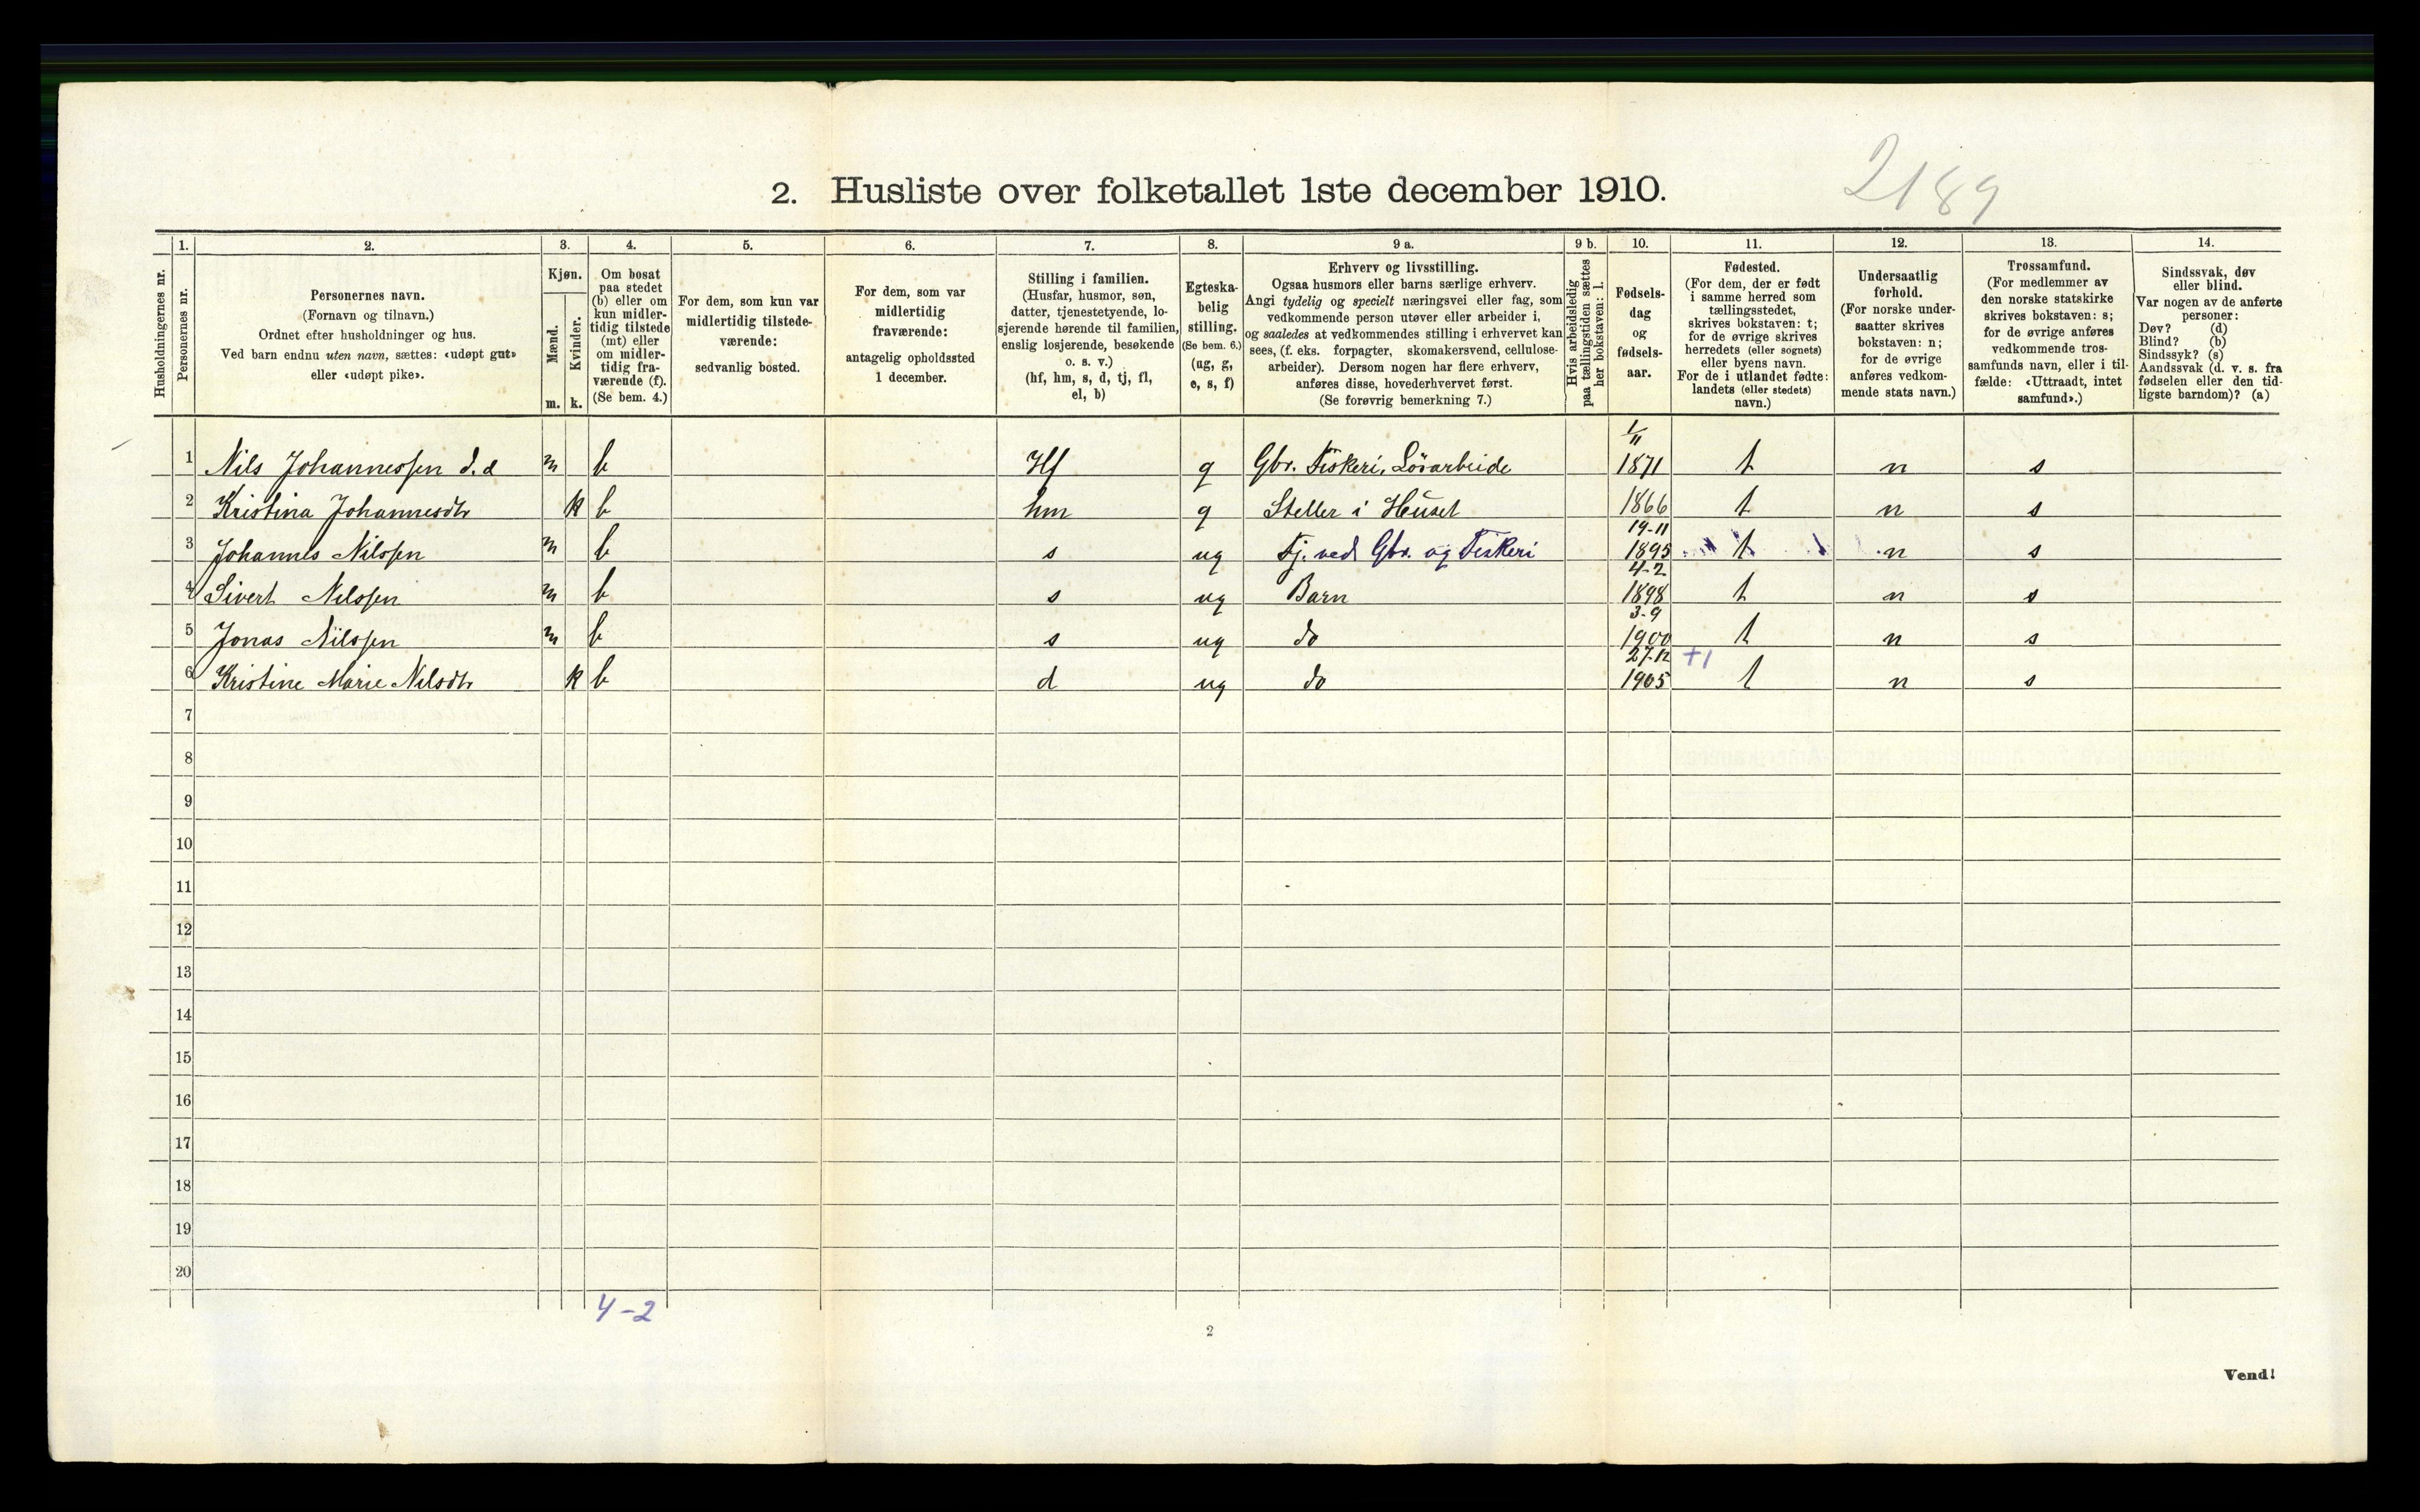 2189
2. Husliste over folketallet 1ste december 1910.
Husholdningernes nr.
1.
Personernes nr.
2.
Personernes navn.
(Fornavn og tilnavn.)
Ordnet efter husholdninger og hus.
Ved barn endnu uten navn, sættes: «udøpt gut»
eller «udøpt pike».
3.
Kjøn.
Mænd.
Kvinder.
m. k.
4.
Om bosat
paa stedet
(b) eller om
kun midler-
tidig tilstede
(mt) eller
om midler-
tidig fra-
værende (f).
(Se bem. 4.)
5.
For dem, som kun var
midlertidig tilstede-
værende:
sedvanlig bosted.
6.
For dem, som var
midlertidig
fraværende:
antagelig opholdssted
1 december.
7.
Stilling i familien.
(Husfar, husmor, søn,
datter, tjenestetyende, lo-
sjerende hørende til familien,
enslig losjerende, besøkende
o. s. v.)
(hf, hm, s, d, tj, fl,
el, b)
8.
Egteska-
belig
stilling.
(Se bem. 6.)
(ug, g,
e, s, f)
9 a.
Erhverv og livsstilling.
Ogsaa husmors eller barns særlige erhverv.
Angi tydelig og specielt næringsvei eller fag, som
vedkommende person utøver eller arbeider i,
og saaledes at vedkommendes stilling i erhvervet kan
sees, (f. eks. forpagter, skomakersvend, cellulose-
arbeider). Dersom nogen har flere erhverv,
anføres disse, hovederhvervet først.
(Se forøvrig bemerkning 7.)
9 b.
Hvis arbeidsledig
paa tællingstiden sættes
her bokstaven: l.
10.
Fødsels-
dag
og
fødsels-
aar.
11.
Fødested.
(For dem, der er født
i samme herred som
tællingsstedet,
skrives bokstaven: t;
for de øvrige skrives
herredets (eller sognets)
eller byens navn.
For de i utlandet fødte:
landets (eller stedets)
navn.)
12.
Undersaatlig
forhold.
(For norske under-
saatter skrives
bokstaven: n;
for de øvrige
anføres vedkom-
mende stats navn.)
13.
Trossamfund.
(For medlemmer av
den norske statskirke
skrives bokstaven: s;
for de øvrige anføres
vedkommende tros-
samfunds navn, eller i til-
fælde: «Uttraadt, intet
samfund».)
14.
Sindssvak, døv
eller blind.
Var nogen av de anførte
personer:
Døv? (d)
Blind? (b)
Sindssyk? (s)
Aandssvak (d. v. s. fra
fødselen eller den tid-
ligste barndom)? (a)
1 Nils Johannessen d.e m b Hf g Gbr. Fiskeri, Løsarbeide 1/11 1871 t n s
2 Kristina Johannesdtr k b hm g Steller i Huset 1866 t n s
3 Johannes Nilssen m b s ug Tj. ved Gbr. og Fiskeri 19-11 1895 t n s
4 Sivert Nilssen m b s ug Barn 4-2 1898 t n s
5 Jonas Nilssen m b s ug do 3-9 1900 t n s
6 Kristine Marie Nilsdtr k b d ug do 27-12 1905 +1 t n s
7
8
9
10
11
12
13
14
15
16
17
18
19
20
4-2
2
Vend!